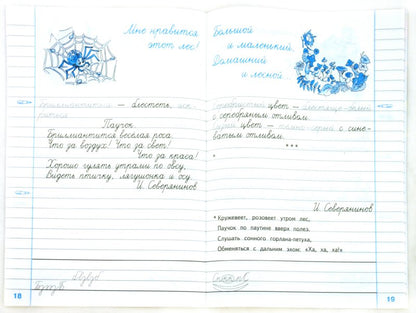 Мне нравится
этот лес!
Бриллиантится — блестеть, ис-
криться
Паучок
Бриллиантится веселая роса.
Что за воздух! Что за свет!
Что за краса!
Хорошо гулять утрами по овсу,
Видеть птичку, лягушонка и осу.
И. Северянинов
18
Большой
и маленький,
Домашний
и лесной.
Серебристый цвет —
с серебряным отливом.
цвет — с сине-
ватым отливом.
* * *
И. Северянинов
• Кружевеет, розовеет утром лес,
Паучок по паутине вверх полез.
Слышать сочного горлана-петуха,
Обменяться с дальним эхом: «Ха, ха, ха!»
19